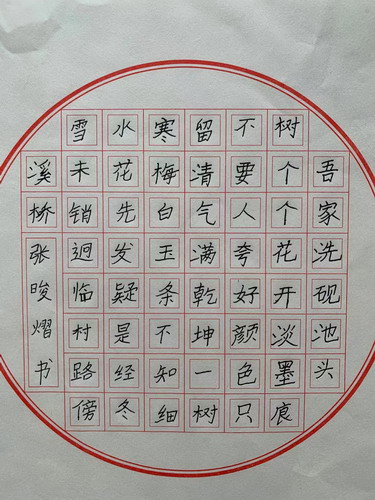 吾家洗砚池头
树个个花开淡墨痕
不要人夸好颜色只
留清气满乾坤一树
寒梅白玉条不知细
水花先发疑是经冬
雪未销迥临村路傍
溪桥
张晙熠书